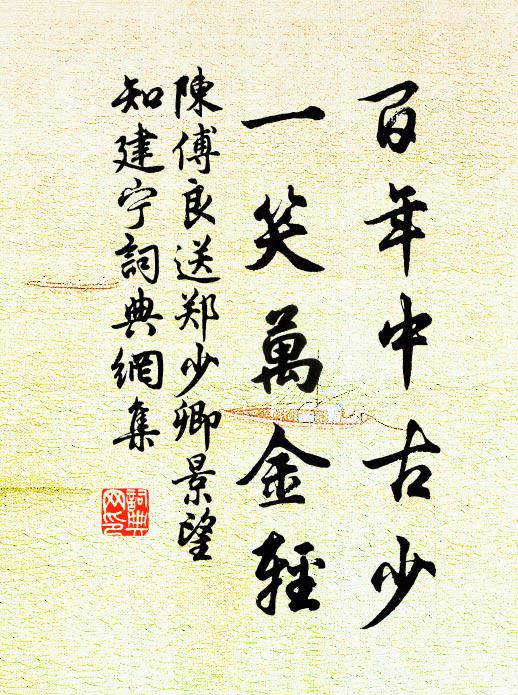 百年中古少
一笑萬金輕
陳傅良送郑少卿景望
知建宁詞典網集
詞典
网印